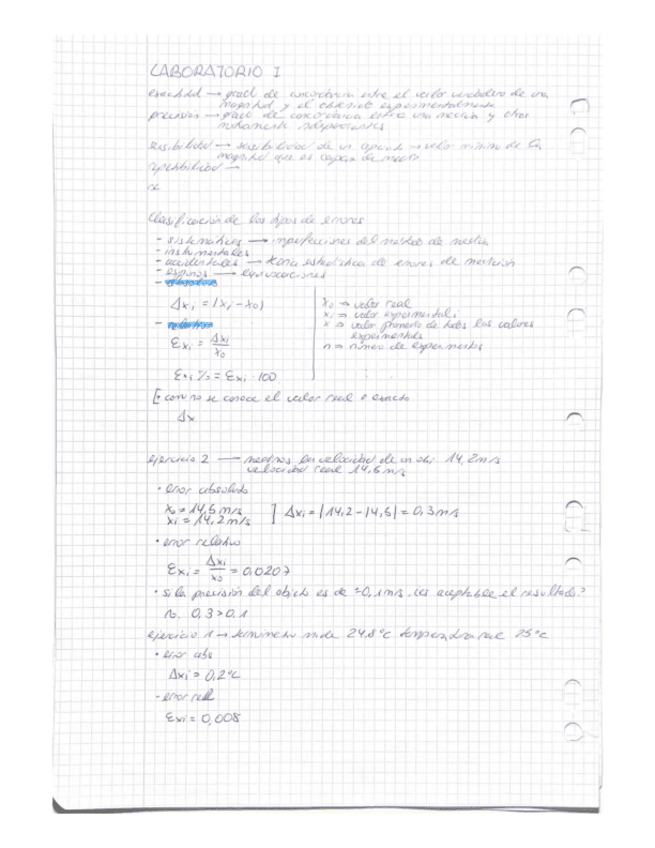 LABORATORIO I
exactitud → grado de concordancia entre el valor verdadero de una
magnitud y el obtenido experimentalmente
precisión → grado de concordancia entre una medida y otras
sensibilidad → sensibilidad de un aparato → valor mínimo de la
magnitud que es capaz de medir
repetibilidad →
re
Clasificación de los tipos de errores
- sistemáticos → imperfecciones del método de medida
- instrumentales
- accidentales → teoría estadística de errores de medición
→ equivocaciones
Δxi = |xi - x0|
x0 ⇒ valor real
xi ⇒ valor experimental i
x ⇒ valor promedio de todos los valores
experimentales
n ⇒ número de experimentos
Exi = Δxi / x0
Exi % = Exi · 100
como no se conoce el valor real o exacto
Δx
ejercicio 2 → la velocidad de un obj. 14,2 m/s
velocidad real 14,5 m/s
• error absoluto
x0 = 14,5 m/s
xi = 14,2 m/s ] Δxi = |14,2 - 14,5| = 0,3 m/s
• error relativo
Exi = Δxi / x0 = 0,0207
• si la precisión del objeto es de 0,1 m/s ¿es aceptable el resultado?
no. 0,3 > 0,1
ejercicio 1 → termómetro mide 24,8°C temperatura real 25°C
• error abs
Δxi = 0,2°C
- error rel
Exi = 0,008